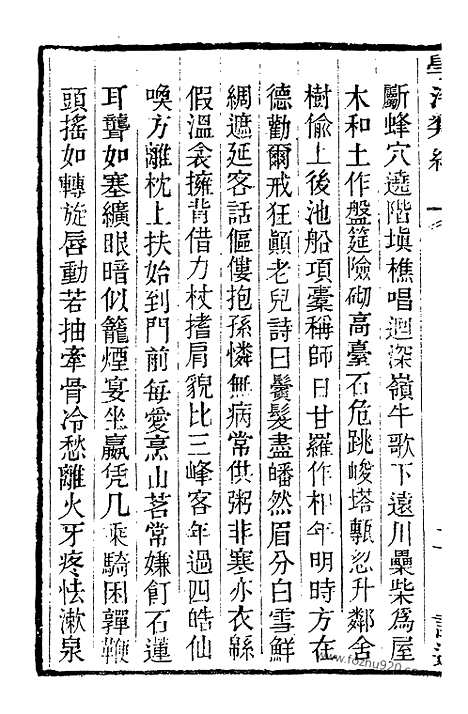 學海類編
斸蜂穴遶階塡樵唱迴深嶺牛歌下遠川壘柴爲屋
木和土作盤筵險砌高臺石危跳峻塔甎忽升鄰舍
樹偸上後池船項橐稱師日甘羅作相年明時方在
德勸爾戒狂顚老兒詩曰鬢髮盡皤然眉分白雪鮮
綢遮延客話傴僂抱孫憐無病常供粥非寒亦衣緜
假溫衾擁背借力杖搘肩貌比三峰客年過四皓仙
喚方離枕上扶始到門前每愛烹山茗常嫌飣石蓮
耳聾如塞纊眼暗似籠煙宴坐羸凭几乘騎困嚲鞭
頭搖如轉旋唇動若抽牽骨冷愁離火牙疼怯漱泉
www.fozhu920.com